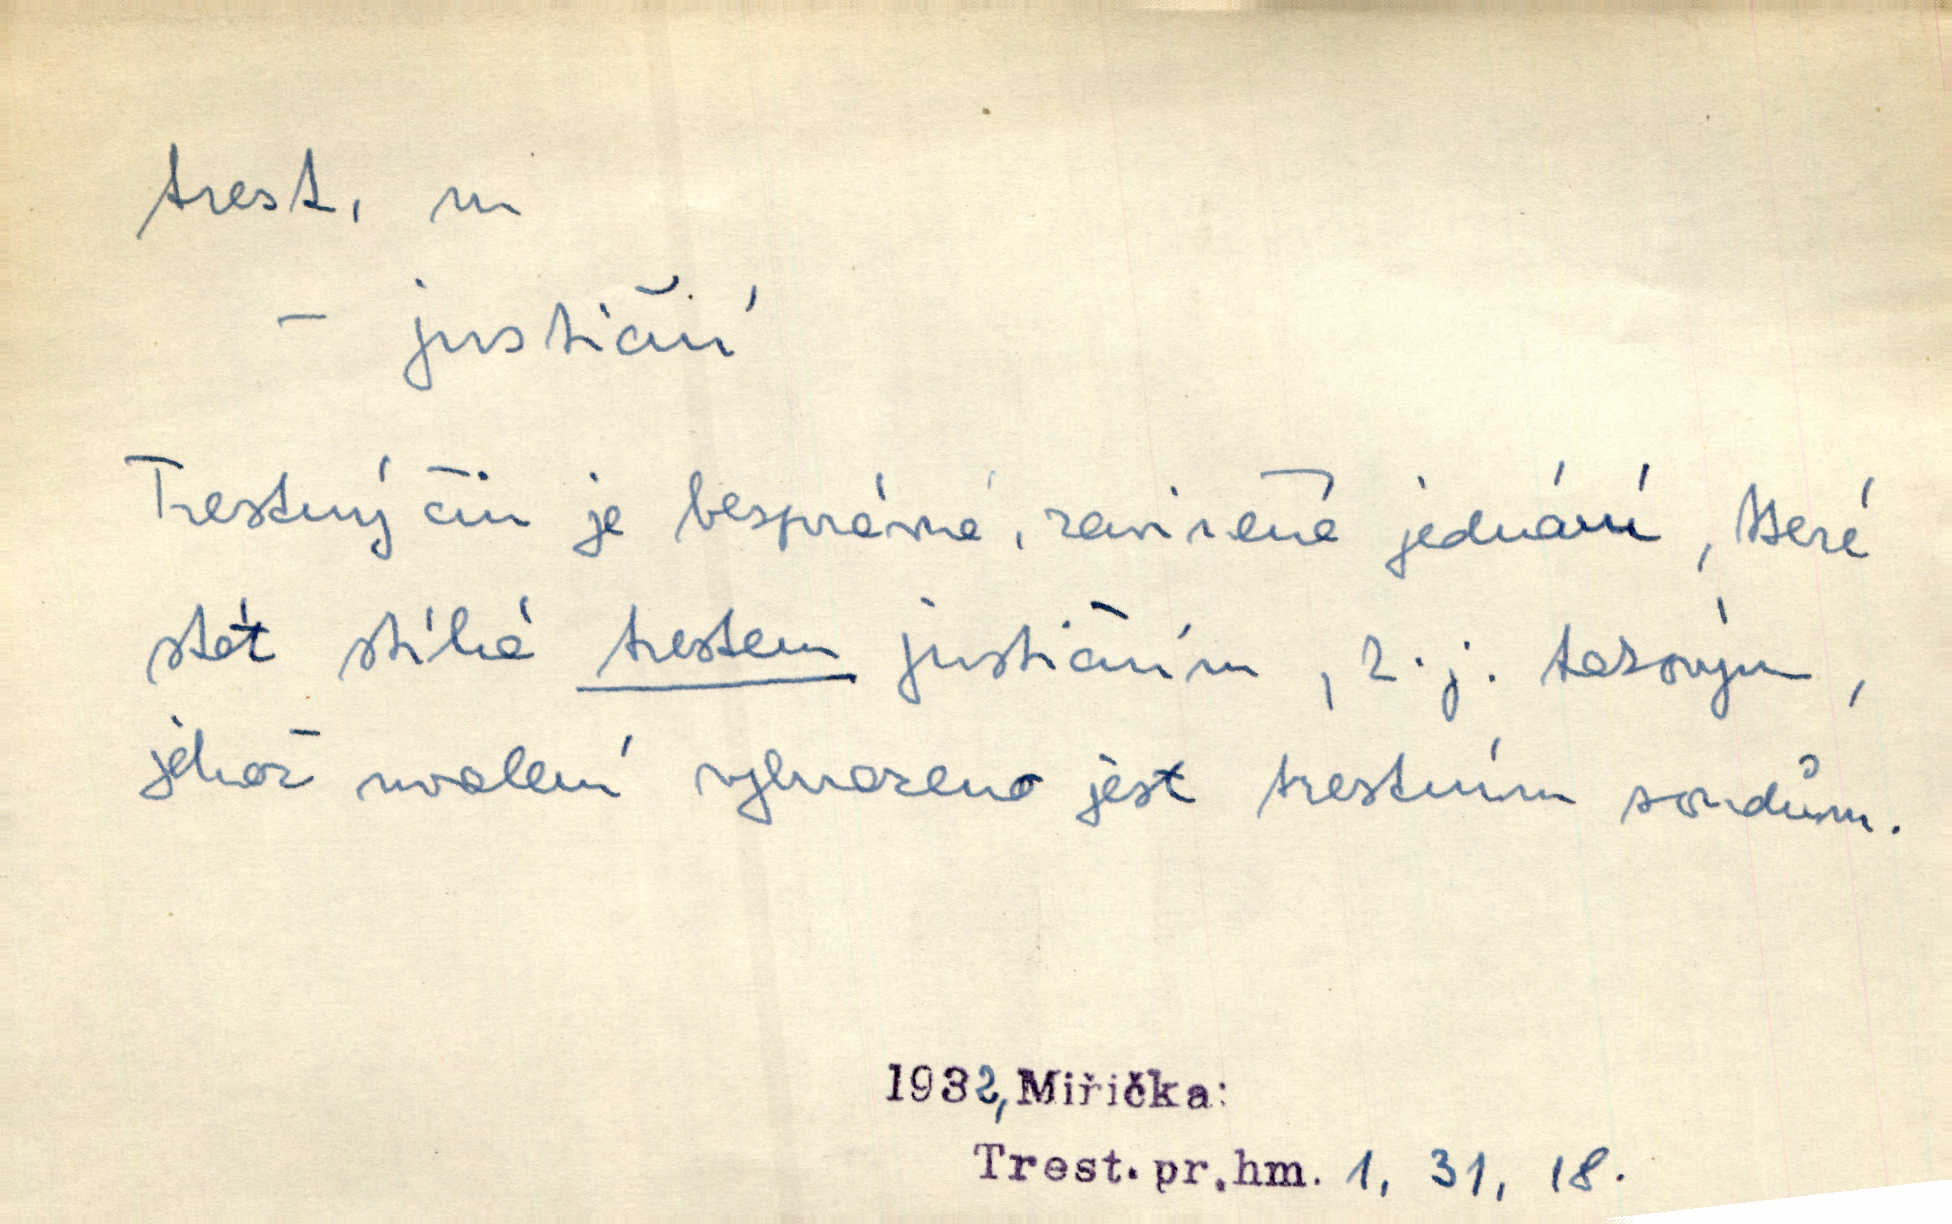 trest, m
– justiční
Trestný čin je bezprávné, zaviněné jednání, které
stát stíhá trestem justičním, t.j. takovým,
jehož uvalení vyhrazeno jest trestním soudům.
1932, Miřička:
Trest. pr. hm. 1, 31, 18.